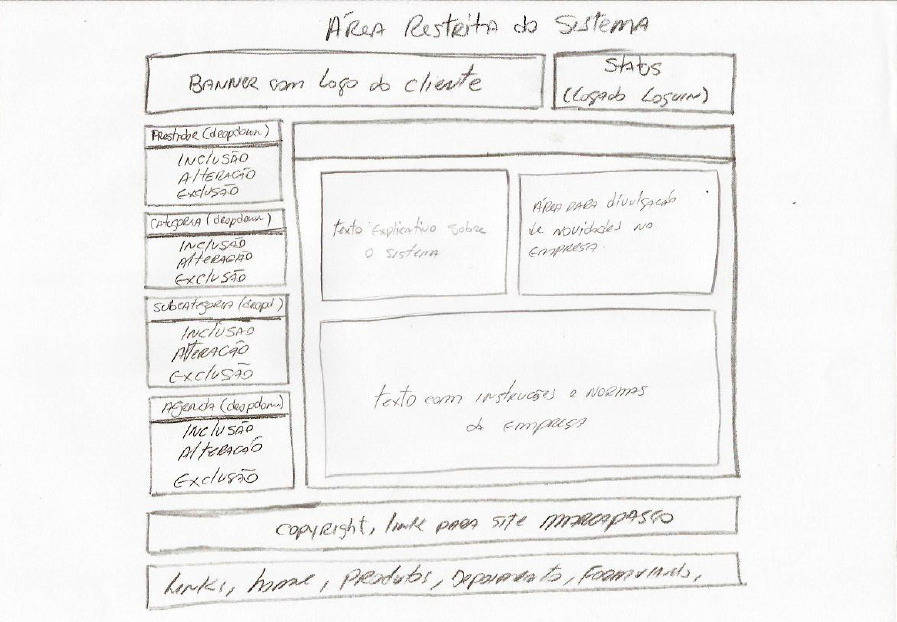 Área Restrita do Sistema
Banner com Logo do cliente
Status
(Logado Loguin)
(dropdown)
Inclusão
Alteração
Exclusão
Categoria (dropdown)
Inclusão
Alteração
Exclusão
Subcategoria (dropd)
Inclusão
Alteração
Exclusão
Agenda (dropdown)
Inclusão
Alteração
Exclusão
texto Explicativo sobre
o sistema
Área para divulgação
de novidades na
empresa.
texto com instruções e normas
da empresa
copyright, link para site marcapasso
Links, home, Produtos, Formulario,